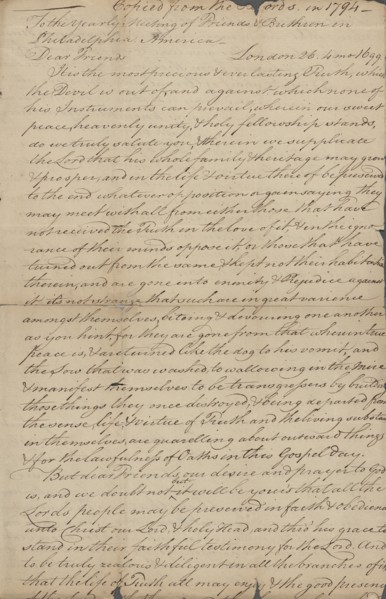 Copied from the Records in 1794 —
To the Yearly Meeting of Friends & Brethren in
Philadelphia America
Dear Friends London 26. 4mo 1699
It is the most precious & everlasting Truth, which
the Devil is out of, and against which none of
his Instruments can prevail, wherein our sweet
peace, heavenly unity, & holy fellowship stands,
do we truly salute you, & therein we supplicate
the Lord that his whole family & heritage may grow
& prosper, and in the life & virtue thereof be preserved
to the end whatever opposition or gainsaying they
may meet withall from either those that have
not received the Truth in the love of it & in the igno
rance of their minds oppose it, or those that have
turned out from the same & kept not their habitation
therein, and are gone into enmity & Prejudice against
it its not strange that such are in great variance
amongst themselves, biteing & devouring one another
as you hint, for they are gone from that wherein true
peace is, & are turned like the dog to his vomit, and
the Sow that was washed to wallowing in the Mire
& manifest themselves to be transgressors by building
those things they once destroyed, & being departed from
the sense, life & virtue of Truth and the living substance
in themselves, are quarelling about outward things
& for the lawfulness of Oaths in this Gospel day.
But dear Friends, our desire and prayer to God
is, and we doubt not but it will be yours that all the
Lords people may be preserved in faith & obedience
unto Christ our Lord & holy Head and thro his grace to
stand in their faithful testimony for the Lord. And
to be truly zealous & diligent in all the branches of it
that the life of Truth all may enjoy & the good presence